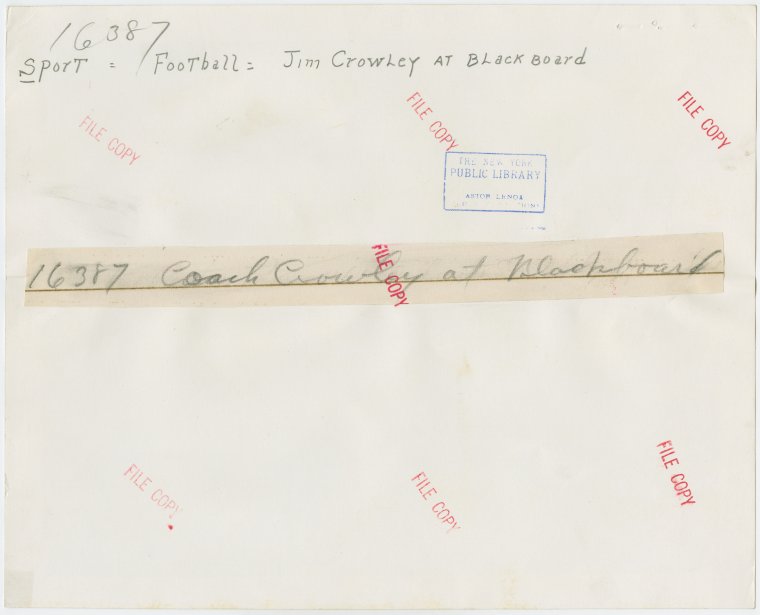 16387
Sport = Football = Jim Crowley AT BLackBoard
FILE COPY
FILE COPY
FILE COPY
THE NEW YORK
PUBLIC LIBRARY
ASTOR LENOX
16387 Coach Crowley at Blackboard
FILE COPY
FILE COPY
FILE COPY
FILE COPY